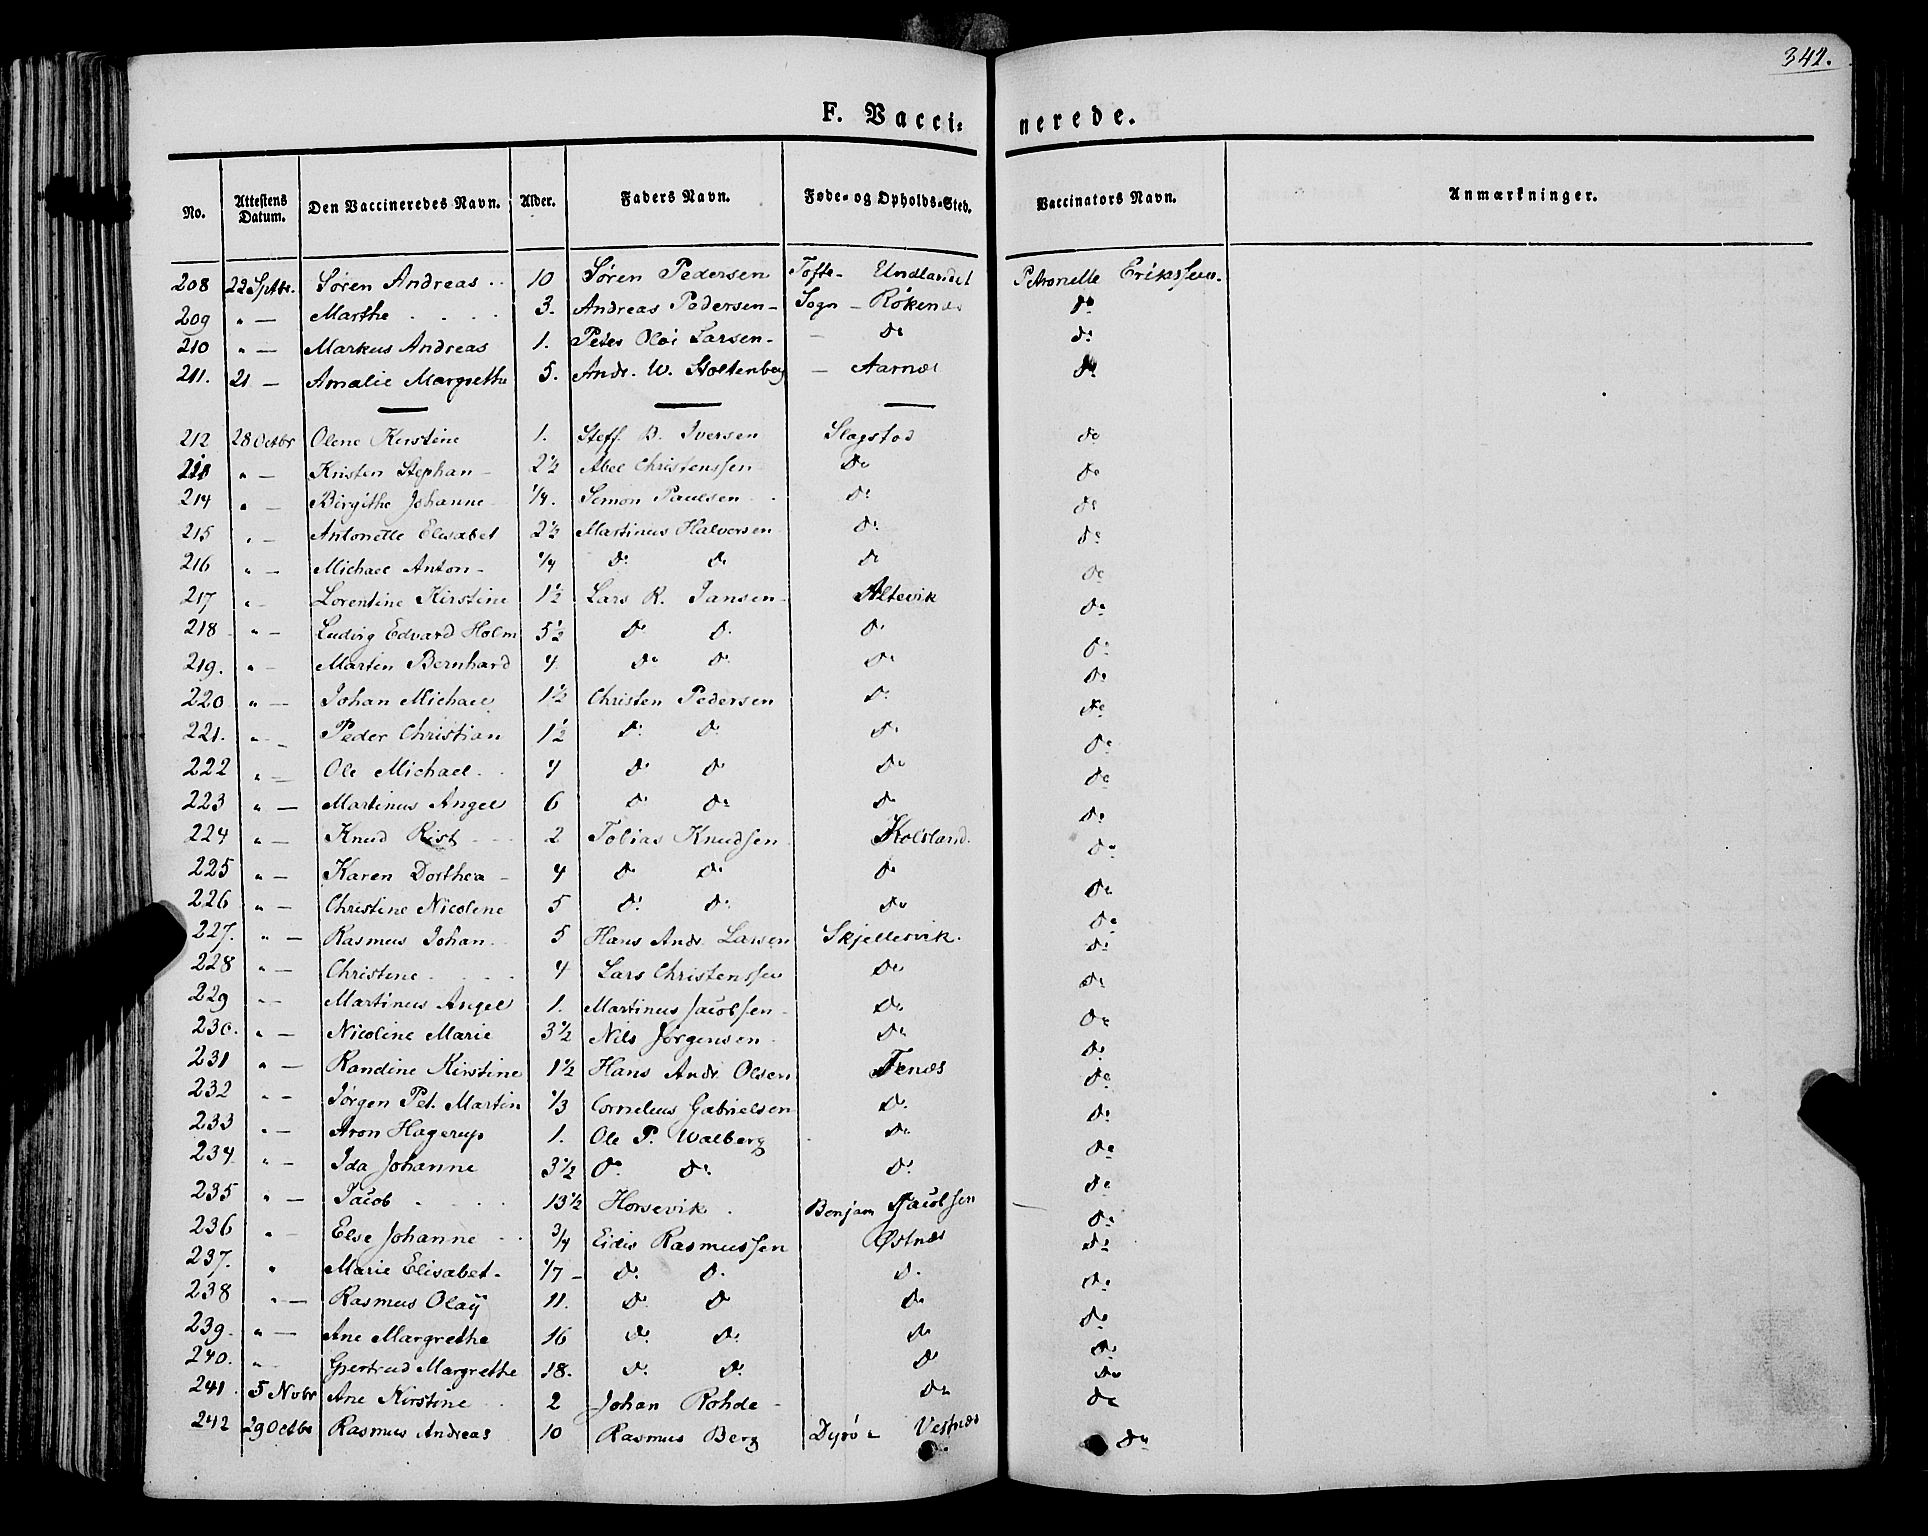 342.
F. Vacci= nerede.
No. Attestens Datum. Den Vaccineredes Navn. Alder. Faders Navn. Føde- og Opholds-Sted. Vaccinators Navn. Anmærkninger.
208 22 Septbr. Søren Andreas 10 Søren Pedersen Tofte- Undlandet Petronelle Erikssen.
209 " — Marthe 3. Andreas Pedersen Sogn - Rökenes do
210 " — Markus Andreas 1. Peter Oloi Larsen — do do
211. 21 — Amalie Margrethe 5. Andr. W. Stoltenberg — Aarnæs do
212 28 Octbr Olene Kirstine 1. Steff. B. Iversen Slagstad do
213 " — Kristen Stephan 2½ Abel Christenssen do do
214 " — Birgithe Johanne ¼. Simon Paulsen do do
215 " — Antonette Elisabet 2½ Martinus Halvorsen do do
216 " — Michael Anton ¼ do do do do
217 " — Lorentine Kirstine 1½ Lars R. Jansen Altevik do
218 " — Ludvig Edvard Holm 5½ do do do do
219. " — Martin Bernhard 4. do do do do
220 " — Johan Michael 1½ Christen Pedersen do do
221. " — Peder Christian 1½ do do do do
222 " — Ole Michael 4 do do do do
223 " — Martinus Angel 6 do do do do
224 " — Knud Rist 2 Tobias Knudsen Kolsland. do
225 " — Karen Dorthea 4 do do do do
226 " — Christine Nicoline 5 do do do do
227. " — Rasmus Johan 5 Hans Andr. Larsen Skjellesvik. do
228 " — Christine 4 Lars Christenssen do do
229 " — Martinus Angel 1. Martinus Jacobsen do do
230. " — Nicoline Marie 3½ Nils Jörgensen do do
231 " — Randine Kirstine 1½ Hans Andr. Olsen Tenæs do
232 " — Jörgen Pet. Martin ⅓ Cornelius Gabrielsen do do
233 " — Aron Hagerup 1. Ole P. Walberg do do
234 " — Ida Johanne 3½ do do do do
235 " — Jacob 13½ Horsevik Benjam Jacobsen do
236 " — Else Johanne ¾ Eidis Rasmussen Østnæs do
237. " Marie Elisabet 1/7 do do do do
238 " — Rasmus Olaÿ 11. do do do do
239. " — Ane Margrethe 16 do do do do
240. " Gjertrud Margrethe 18. do do do do
241. 5 Nobr Ane Kirstine 2 Johan Rohde do do
242 29 Octbr Rasmus Andreas 10 Rasmus Berg Dyrö Vestnæs do